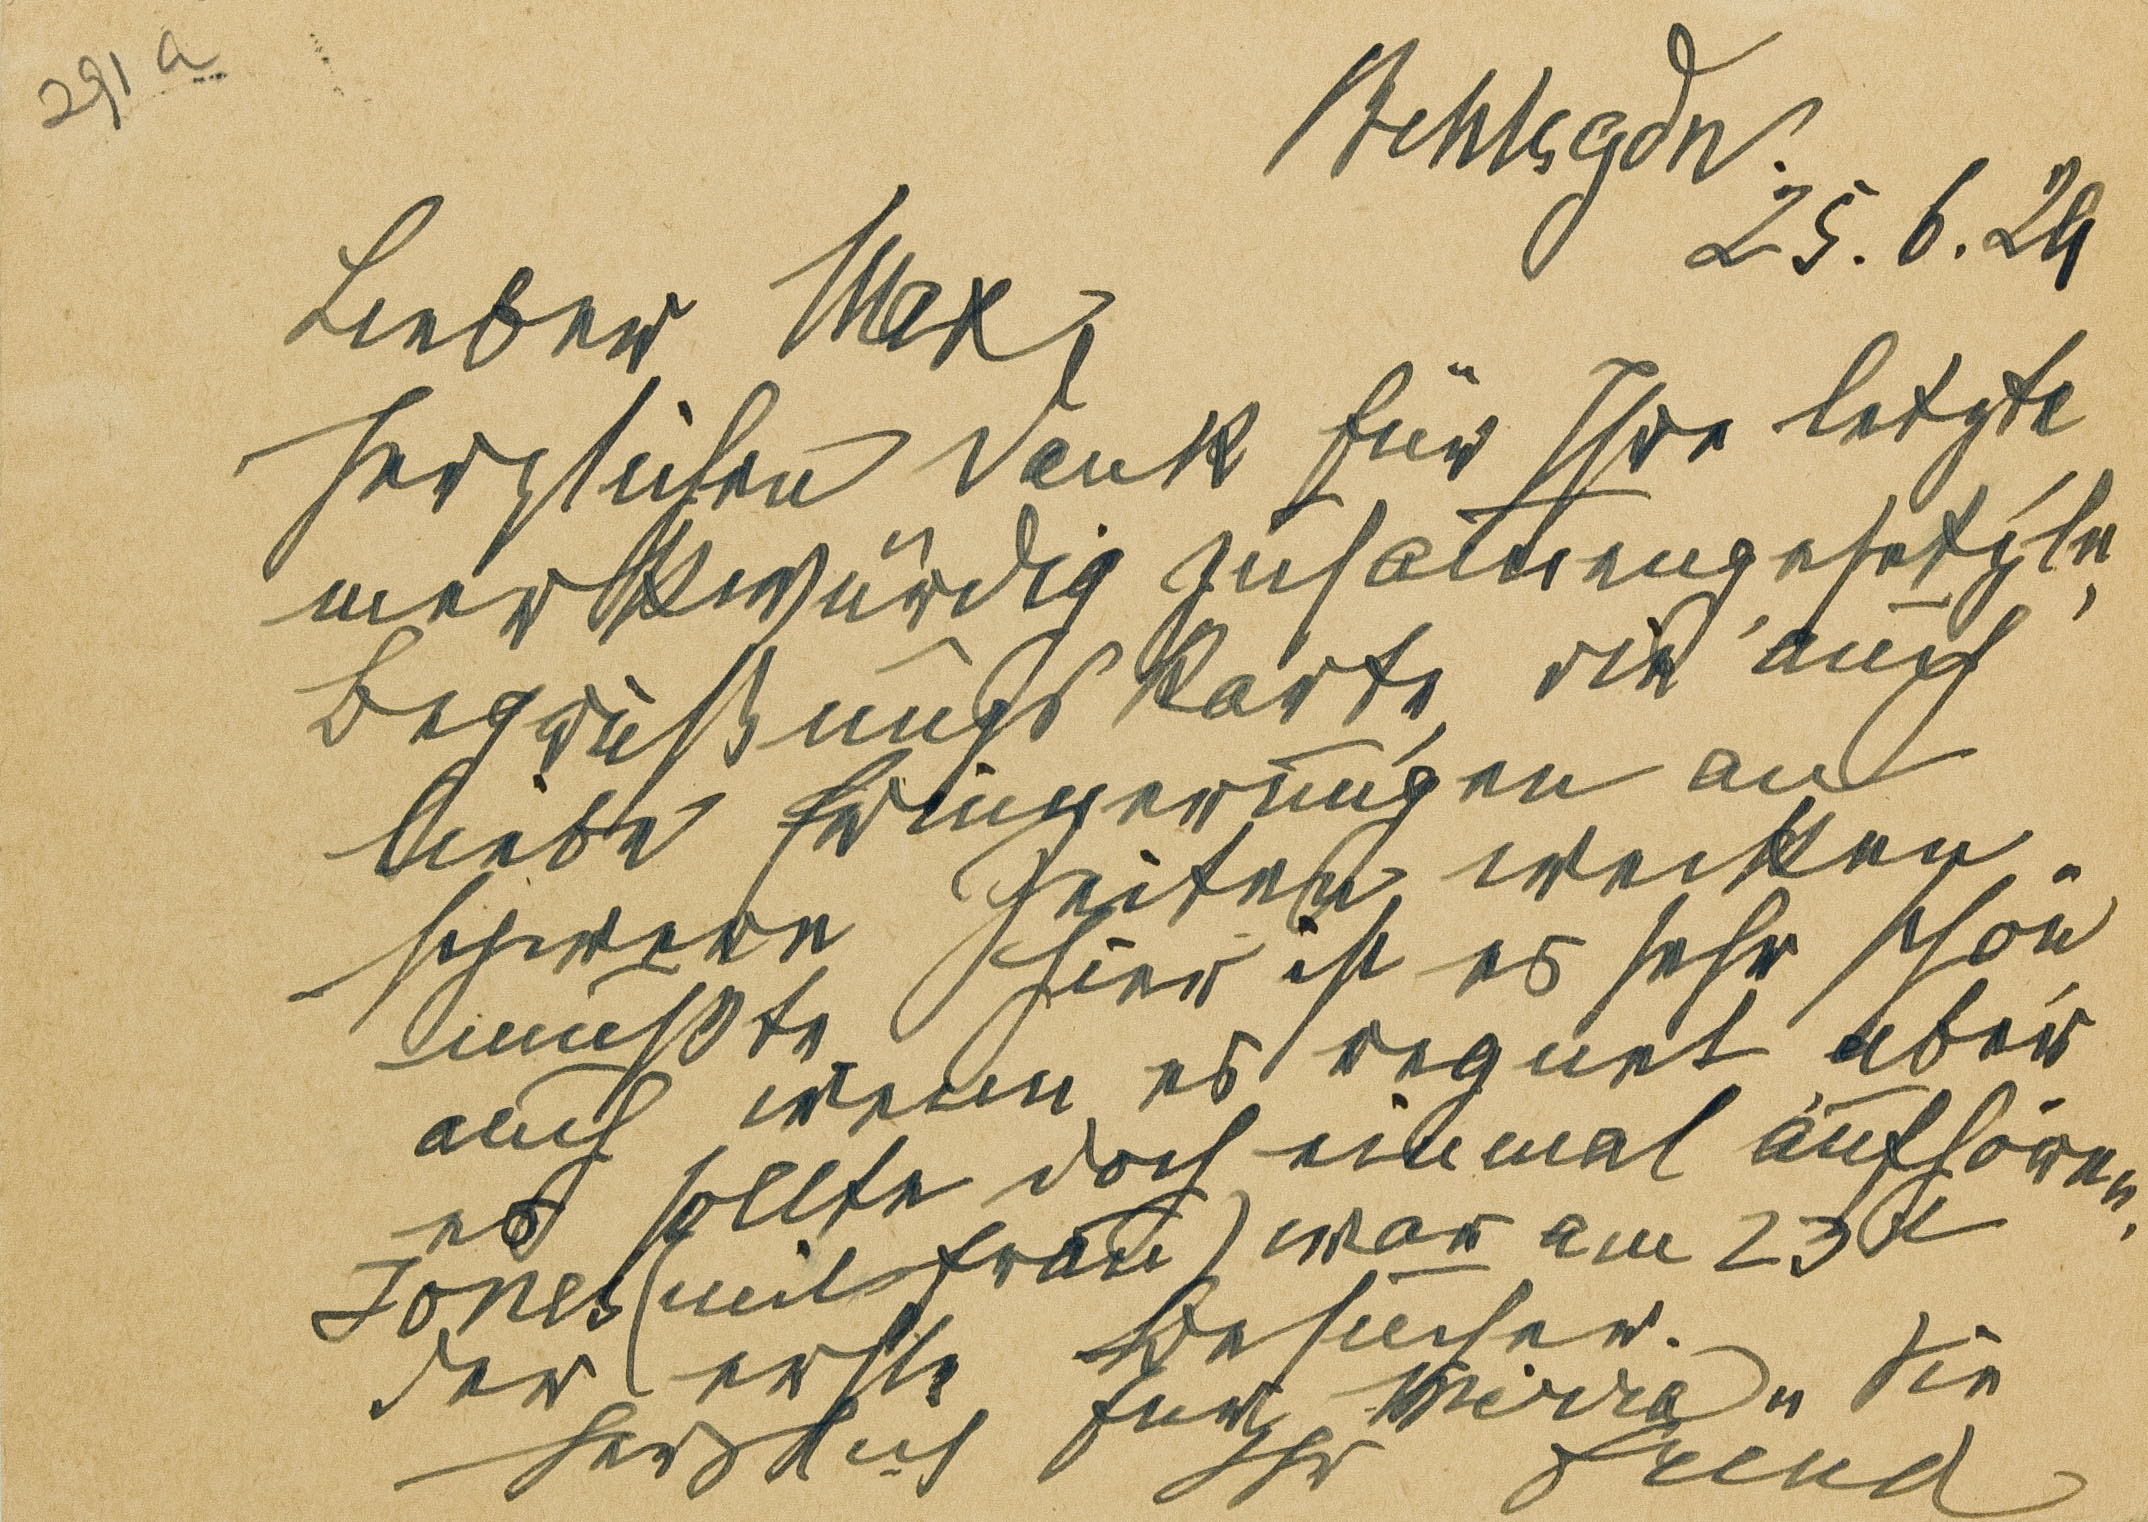 291 a
Bchtsgdn.
25.6.29
Lieber Max,
Herzlichen Dank für Ihre letzte
merkwürdig zusammengesetzte,
Begrüßungskarte, die auch
liebe Erinnerungen an
schwere Zeiten wecken
mußte. Hier ist es sehr schön
auch wenn es regnet aber
es sollte doch einmal aufhören.
Jones (mit Frau) war am 23t
der erste Besucher.
Herzlich für Mirra u Sie
Ihr Freud